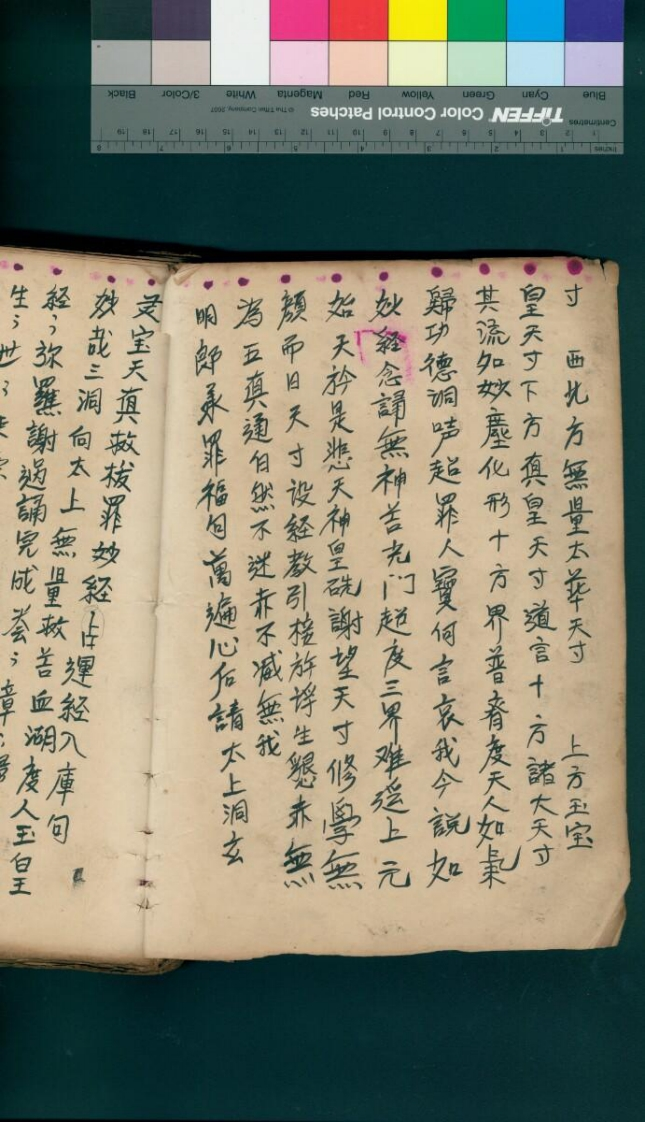 寸 西北方無量太華天寸 上方玉宝
皇天寸下方真皇天寸道言十方諸大天寸
其流如妙塵化形十方界普齊度天人如氣
歸功德洞吽超罪人實何言哀我今說如
妙經念誦無神苦先門超度三界难逕上元
始天衿是悲天神皇硗謝望天寸修學無
顏而日天寸设經教引接於浮生懇赤無
為五真通自然不迷赤不减無我
明郎承罪福句萬遍心石請太上洞玄
灵宝天真救拔罪妙經
運經入庫句
妙哉三洞向太上無量救苦血湖度人玉皇
經〻弥羅謝過誦完成
生〻世〻
Blue Cyan Green Yellow Red Magenta White 3/Color Black
TIFFEN Color Control Patches
© The Tiffen Company, 2007
Centimetres
Inches